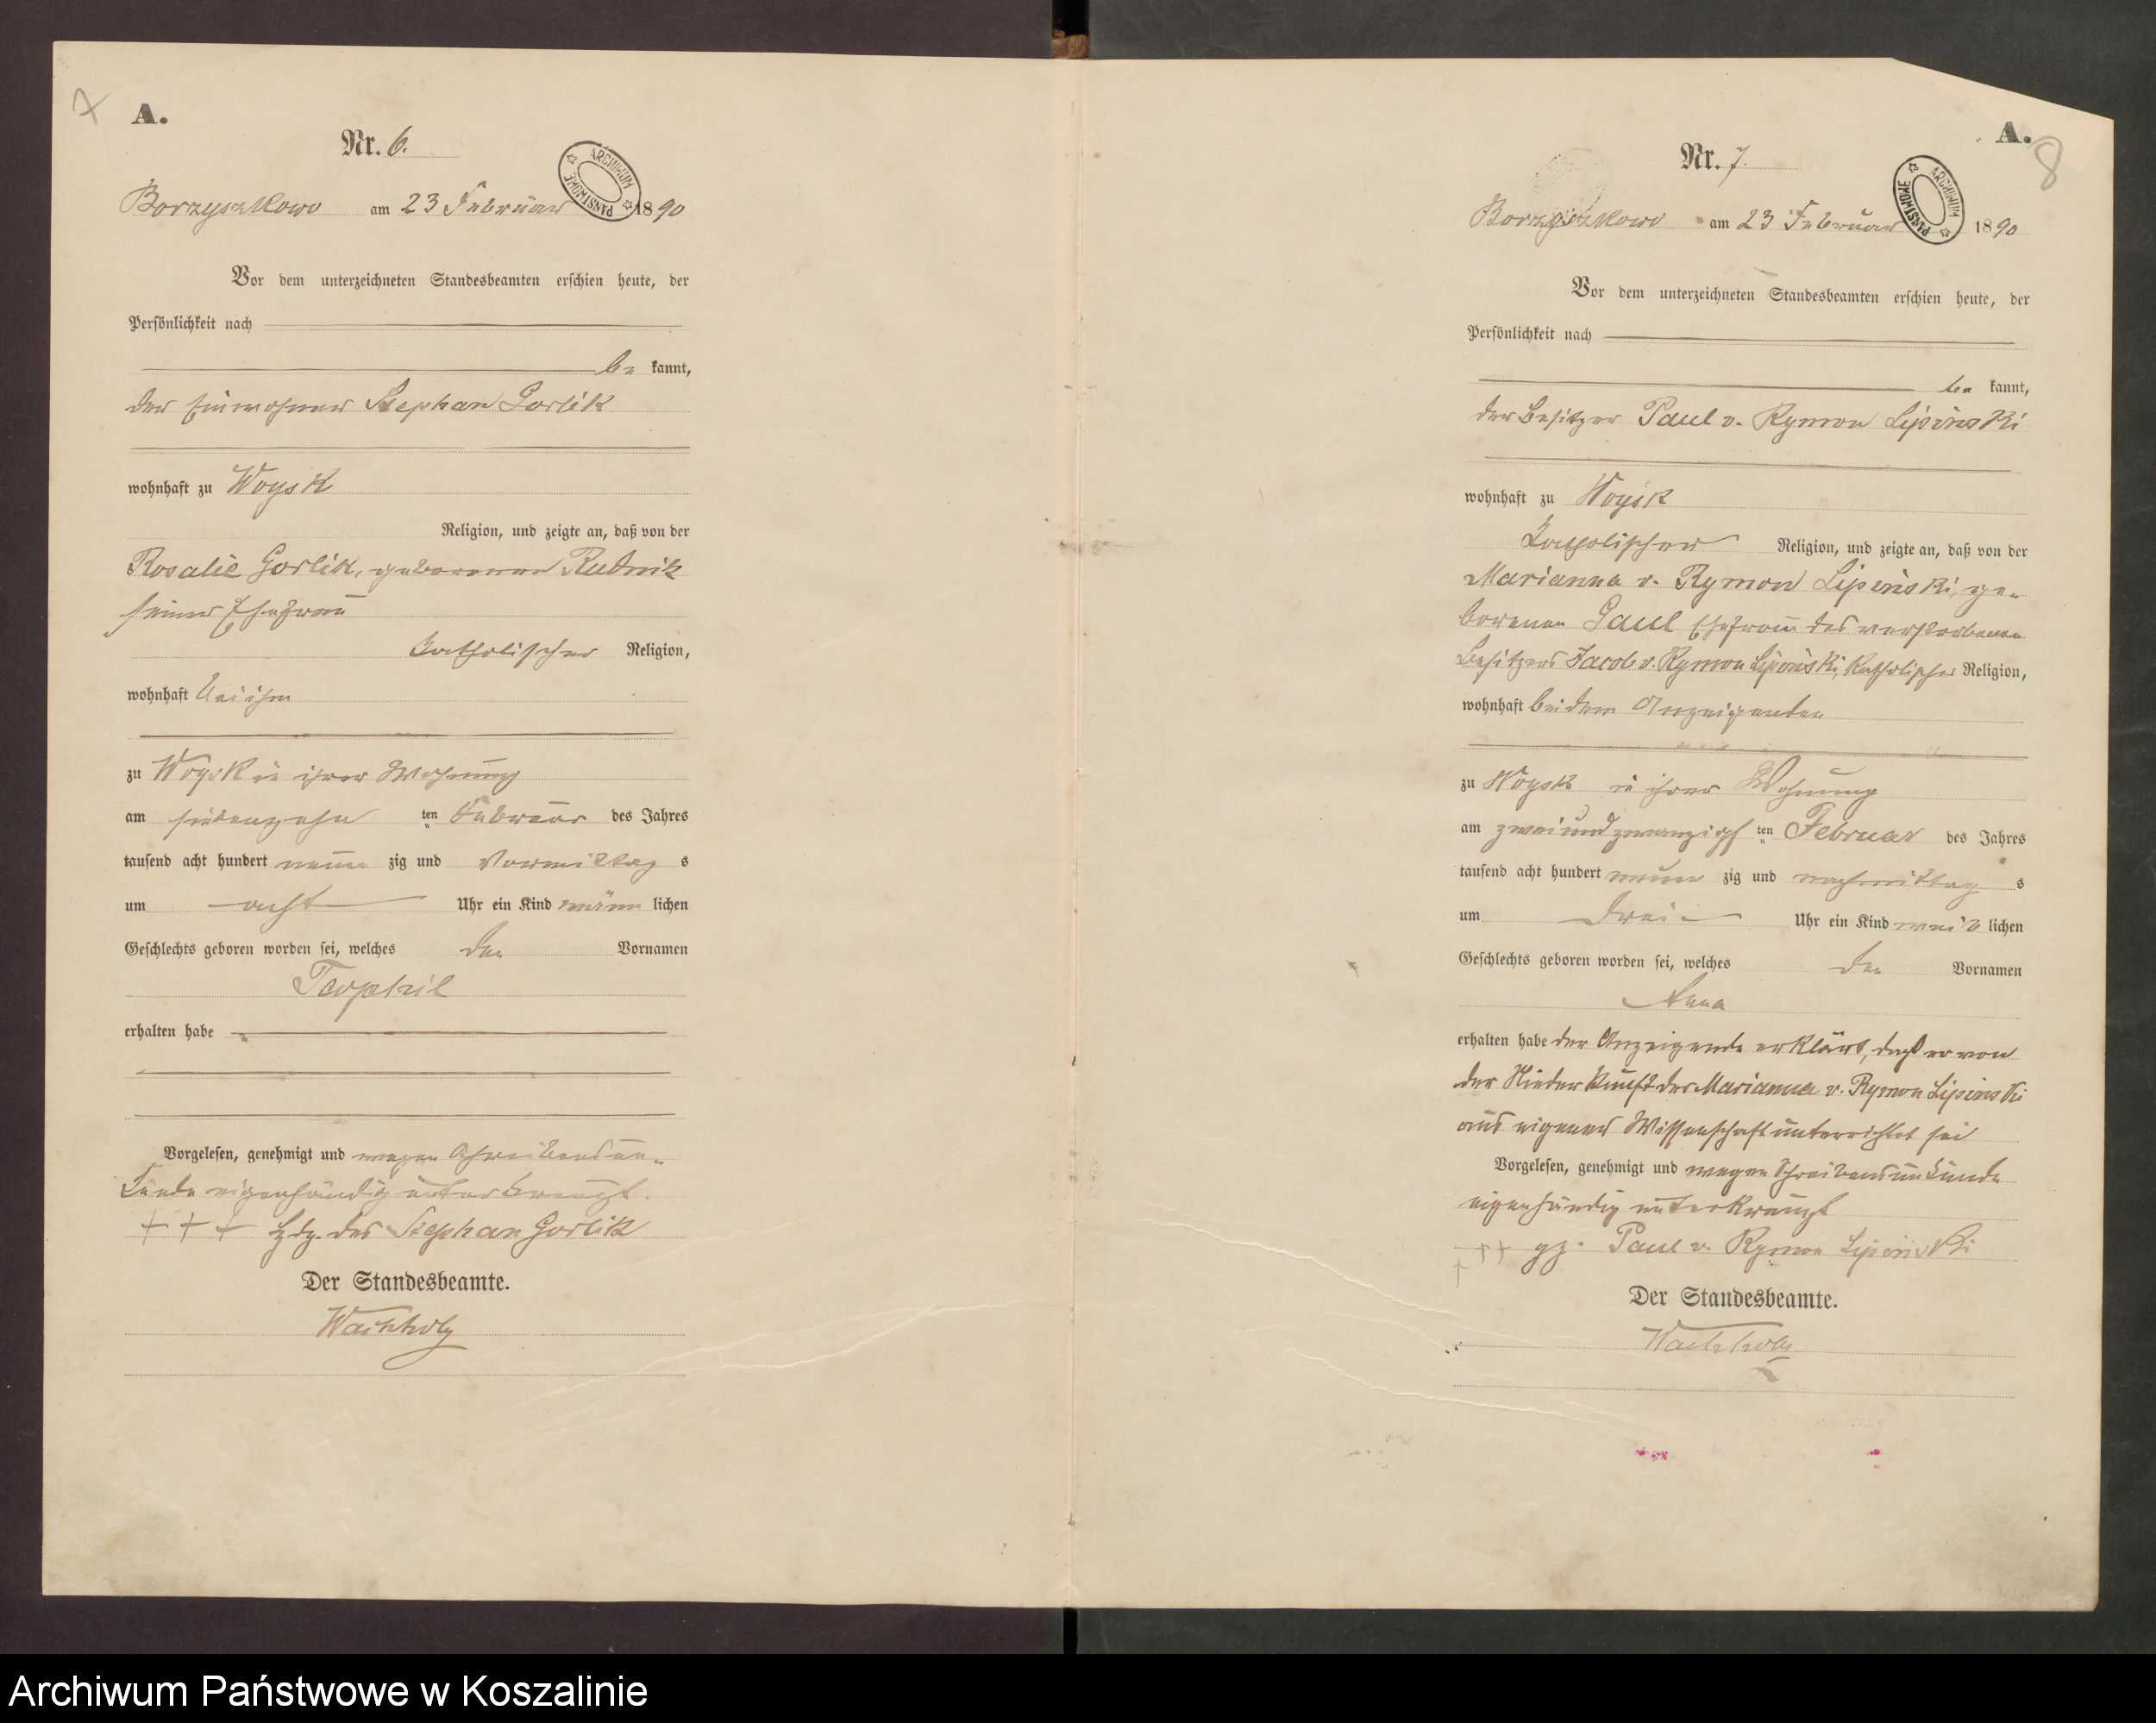 7
A.
Nr. 6.
ARCHIWUM PAŃSTWOWE
Borzyszkowo am 23 Februar 1890
Vor dem unterzeichneten Standesbeamten erschien heute, der
Persönlichkeit nach
be kannt,
der Einwohner Stephan Gorlik
wohnhaft zu Woysk
Religion, und zeigte an, daß von der
Rosalie Gorlik, geborenen Rudnik
seiner Ehefrau
katholischer Religion,
wohnhaft bei ihm
zu Woysk in ihrer Wohnung
am siebenzehn ten Februar des Jahres
tausend acht hundert neun zig und Vormittag s
um acht Uhr ein Kind männ lichen
Geschlechts geboren worden sei, welches den Vornamen
Teophil
erhalten habe
Vorgelesen, genehmigt und wegen Schreibensun-
kunde eigenhändig unterkreuzt.
+ + + Hdz. des Stephan Gorlik
Der Standesbeamte.
Wachholz
A.
8
Nr. 7.
ARCHIWUM PAŃSTWOWE
Borzyszkowo am 23 Februar 1890
Vor dem unterzeichneten Standesbeamten erschien heute, der
Persönlichkeit nach
be kannt,
der Besitzer Paul v. Rymon Lipinski
wohnhaft zu Woysk
katholischer Religion, und zeigte an, daß von der
Marianna v. Rymon Lipinski, ge-
borenen Gaul Ehefrau des verstorbenen
Besitzers Jacob v. Rymon Lipinski, katholischer Religion,
wohnhaft bei dem Anzeigenden
zu Woysk in ihrer Wohnung
am zweiundzwanzigst ten Februar des Jahres
tausend acht hundert neun zig und nachmittag s
um drei Uhr ein Kind weib lichen
Geschlechts geboren worden sei, welches den Vornamen
Anna
erhalten habe der Anzeigende erklärt, daß er von
der Niederkunft der Marianna v. Rymon Lipinski
aus eigener Wissenschaft unterrichtet sei
Vorgelesen, genehmigt und wegen Schreibensunkunde
eigenhändig unterkreuzt
+++ gz. Paul v. Rymon Lipinski
Der Standesbeamte.
Wachholz
Archiwum Państwowe w Koszalinie